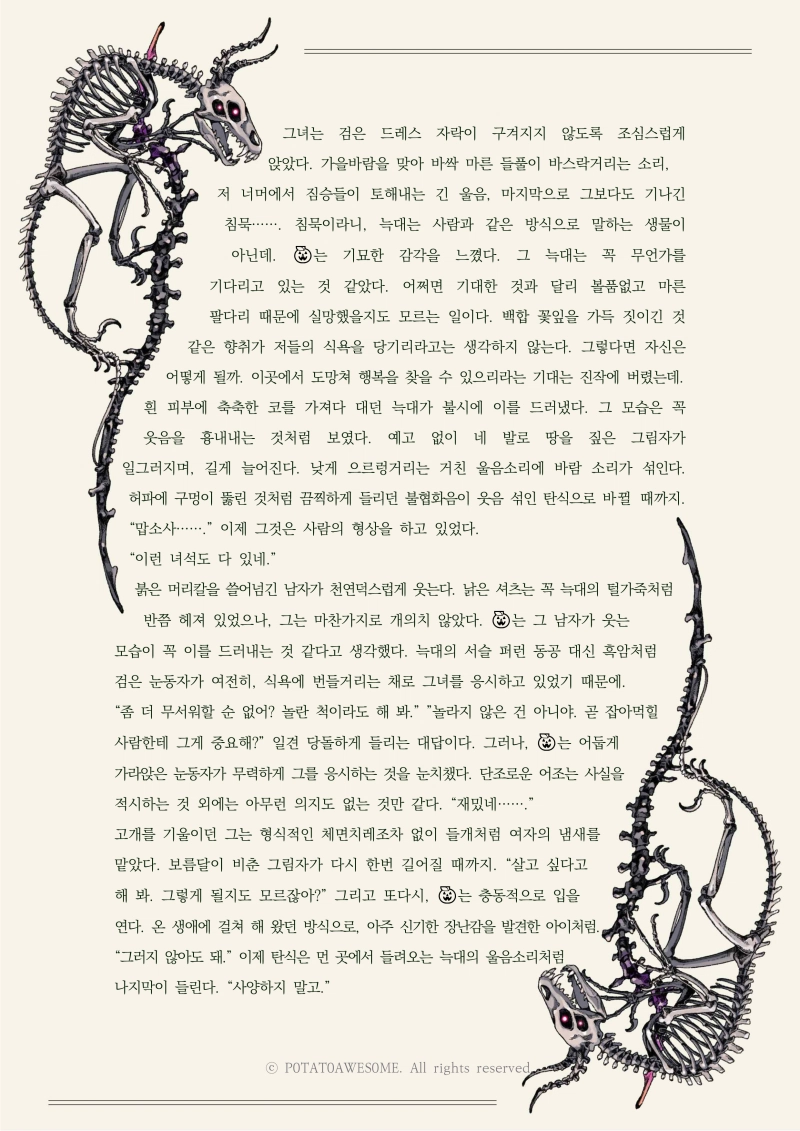 그녀는 검은 드레스 자락이 구겨지지 않도록 조심스럽게
앉았다. 가을바람을 맞아 바싹 마른 들풀이 바스락거리는 소리,
저 너머에서 짐승들이 토해내는 긴 울음, 마지막으로 그보다도 기나긴
침묵……. 침묵이라니, 늑대는 사람과 같은 방식으로 말하는 생물이
아닌데. 는 기묘한 감각을 느꼈다. 그 늑대는 꼭 무언가를
기다리고 있는 것 같았다. 어쩌면 기대한 것과 달리 볼품없고 마른
팔다리 때문에 실망했을지도 모르는 일이다. 백합 꽃잎을 가득 짓이긴 것
같은 향취가 저들의 식욕을 당기리라고는 생각하지 않는다. 그렇다면 자신은
어떻게 될까. 이곳에서 도망쳐 행복을 찾을 수 있으리라는 기대는 진작에 버렸는데.
흰 피부에 축축한 코를 가져다 대던 늑대가 불시에 이를 드러냈다. 그 모습은 꼭
웃음을 흉내내는 것처럼 보였다. 예고 없이 네 발로 땅을 짚은 그림자가
일그러지며, 길게 늘어진다. 낮게 으르렁거리는 거친 울음소리에 바람 소리가 섞인다.
허파에 구멍이 뚫린 것처럼 끔찍하게 들리던 불협화음이 웃음 섞인 탄식으로 바뀔 때까지.
“맙소사…….” 이제 그것은 사람의 형상을 하고 있었다.
“이런 녀석도 다 있네.”
붉은 머리칼을 쓸어넘긴 남자가 천연덕스럽게 웃는다. 낡은 셔츠는 꼭 늑대의 털가죽처럼
반쯤 헤져 있었으나, 그는 마찬가지로 개의치 않았다. 는 그 남자가 웃는
모습이 꼭 이를 드러내는 것 같다고 생각했다. 늑대의 서슬 퍼런 동공 대신 흑암처럼
검은 눈동자가 여전히, 식욕에 번들거리는 채로 그녀를 응시하고 있었기 때문에.
“좀 더 무서워할 순 없어? 놀란 척이라도 해 봐.” ”놀라지 않은 건 아니야. 곧 잡아먹힐
사람한테 그게 중요해?” 일견 당돌하게 들리는 대답이다. 그러나, 는 어둡게
가라앉은 눈동자가 무력하게 그를 응시하는 것을 눈치챘다. 단조로운 어조는 사실을
적시하는 것 외에는 아무런 의지도 없는 것만 같다. “재밌네…….”
고개를 기울이던 그는 형식적인 체면치레조차 없이 들개처럼 여자의 냄새를
맡았다. 보름달이 비춘 그림자가 다시 한번 길어질 때까지. “살고 싶다고
해 봐. 그렇게 될지도 모르잖아?” 그리고 또다시, 는 충동적으로 입을
연다. 온 생애에 걸쳐 해 왔던 방식으로, 아주 신기한 장난감을 발견한 아이처럼.
“그러지 않아도 돼.” 이제 탄식은 먼 곳에서 들려오는 늑대의 울음소리처럼
나지막이 들린다. “사양하지 말고.”
© POTATOAWESOME. All rights reserved.